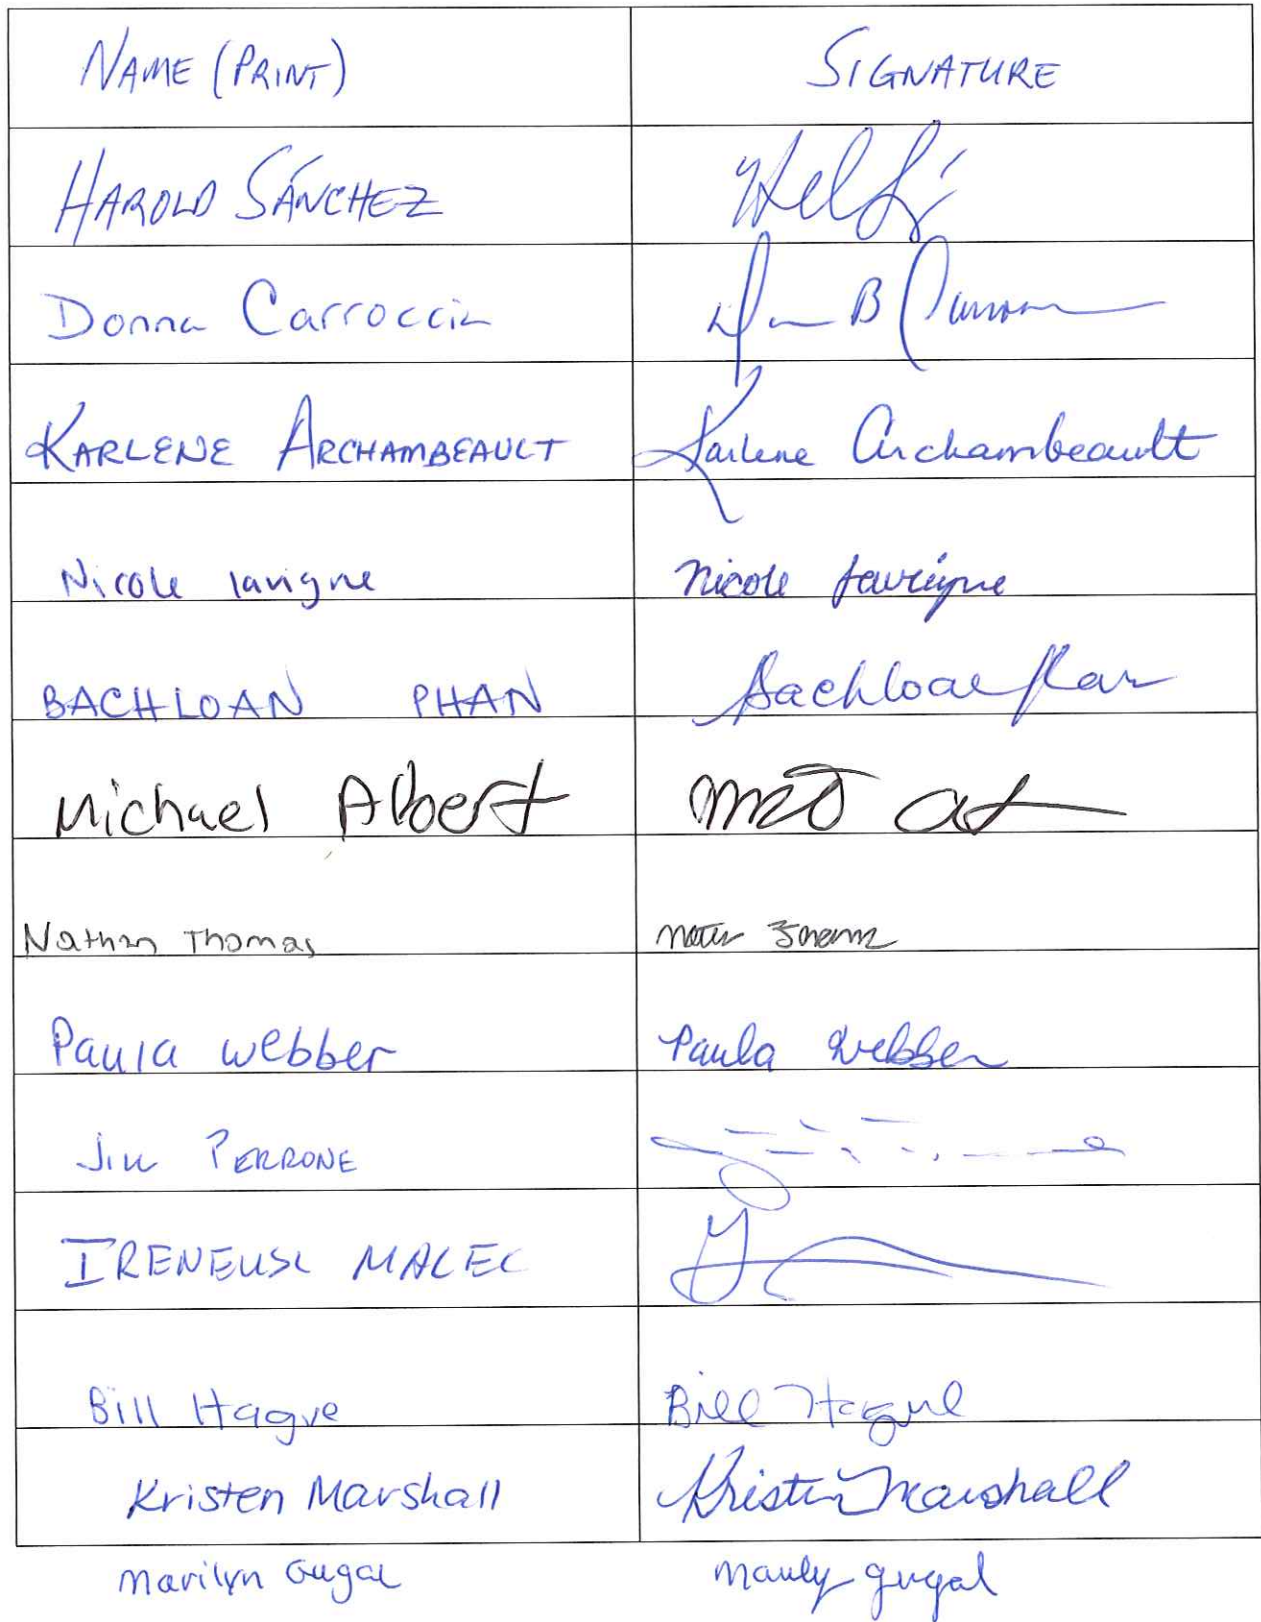 NAME (PRINT) SIGNATURE
HAROLD SÁNCHEZ
Donna Carroccia B
KARLENE ARCHAMBEAULT Karlene Archambeault
Nicole lavigne Nicole Lavigne
BACHLOAN PHAN Bachloan Phan
Michael Albert
Nathan Thomas
Paula Webber Paula Webber
Jill PERRONE
IRENEUSZ MALEC
Bill Hague Bill Hague
Kristen Marshall Kristen Marshall
Marilyn Gugal gugal